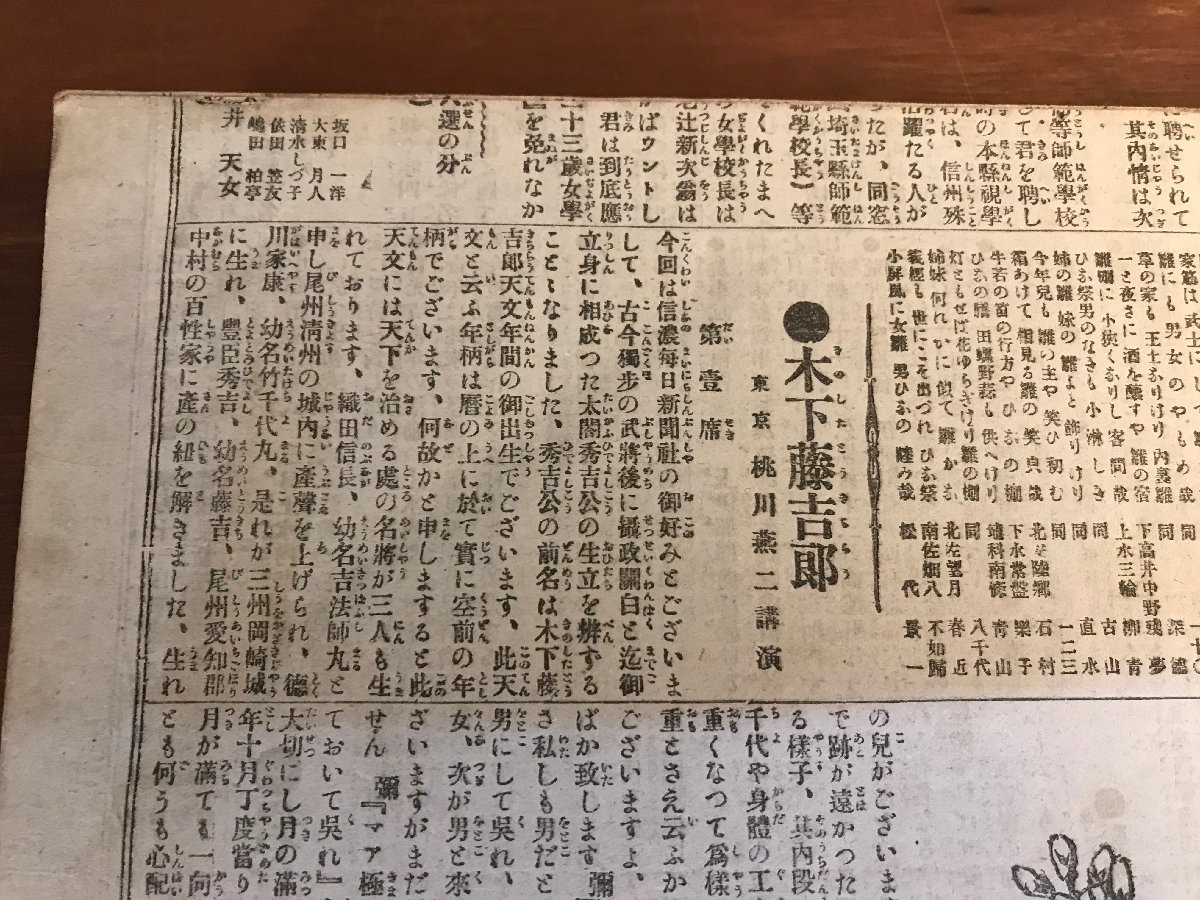 に聘せられて
其内情は次
等師範學校
して君を聘し
時の本縣視學
名は、信州殊
活躍たる人が
つたが、同窓
埼玉縣師範
範學校長)等
てくれたまへ
女學校長は
辻新次翁は
ばウントし
君は到底應
三十三歳女學
を免れなか
選の分
坂口 一洋
大東 月人
清水しづ子
依田 悠友
嶋田 柏亭
井 天女
雛にも男女のややもめ哉
草の家も王土なりけり内裏雛
一と夜さに酒を釀すや雛の宿
雛棚に小狹くなりし客間哉
ひな祭男のなきも小淋しき
姉の雛妹の雛よと飾りけり
今年兒も雛の主や笑ひ初む
箱あけて相見る雛の笑貞哉
牛若の笛の行方やひなの棚
ひなの膳田螺野蒜も供へけり
灯ともせば花ゆらぎけり雛の棚
姉妹何れかに似て雛かな
義經も世にこそ出づれひな祭
小屏風に女雛男ひなの睦み哉
同
下高井中野 殘夢
上水三輪 柳青
同 古山
同 直水
同 一二三
北安陸郷 石村
下水常盤 樂子
埴科南條 青山
同 八千代
北左望月 春近
南佐畑八 不如歸
松代 景一
●木下藤吉郎
東京 桃川燕二講演
第壹席
今回は信濃毎日新聞社の御好みとございま
して、古今獨歩の武將後に攝政關白と迄御
立身に相成つた太閤秀吉公の生立を辨ずる
ことゝなりました、秀吉公の前名は木下藤
吉郎天文年間の御出生でございます、此天
文と云ふ年柄は暦の上に於て實に空前の年
柄でございます、何故かと申しますると此
天文には天下を治める處の名將が三人も生
れております、織田信長、幼名吉法師丸と
申し尾州清州の城内に産聲を上げられ、德
川家康、幼名竹千代丸、是れが三州岡崎城
に生れ、豐臣秀吉、幼名藤吉、尾州愛知郡
中村の百姓家に産の紐を解きました、生れ
の兒がございま
で跡が遠かつた
る樣子、其内段
千代や身體の工
重くなつて爲樣
重とさえ云ふか
ございますよ、
ばか致します 彌
さ私しも男だと
男にして呉れ、
女、次が男と來
ざいますがまだ
せん 彌『マア極
ておいて呉れ』
大切にし月の滿
年十月丁度當り
月が滿ても一向
とも何うも心配